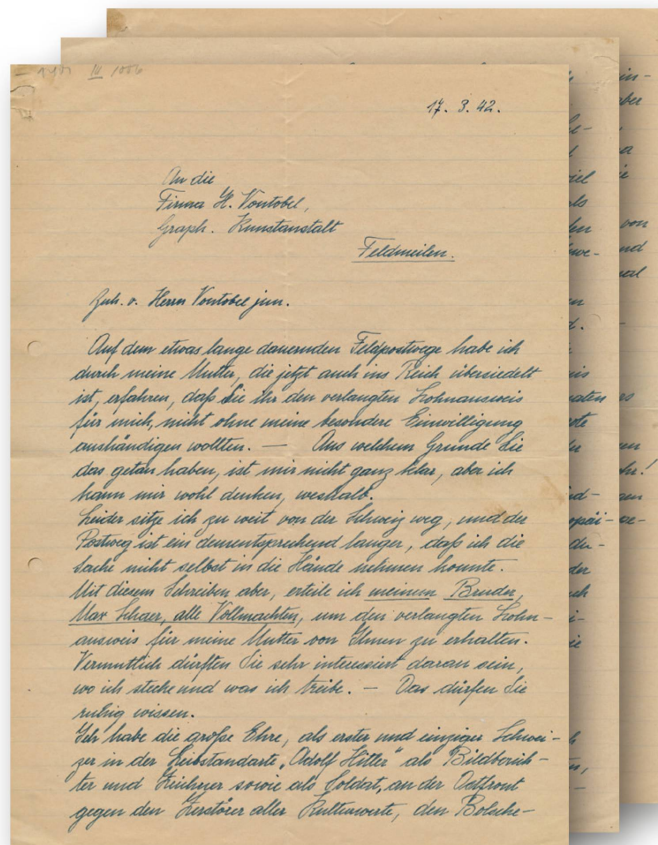 III 1006
17. 3. 42.
An die
Firma H. Vontobel,
Graph. Kunstanstalt
Feldmeilen.
Zuh. v. Herrn Vontobel jun.
Auf dem etwas lange dauernden Feldpostwege habe ich
durch meine Mutter, die jetzt auch ins Reich übersiedelt
ist, erfahren, daß Sie ihr den verlangten Lohnausweis
für mich, nicht ohne meine besondere Einwilligung
aushändigen wollten. — Aus welchem Grunde Sie
das getan haben, ist mir nicht ganz klar, aber ich
kann mir wohl denken, weshalb.
Leider sitze ich zu weit von der Schweiz weg, und der
Postweg ist ein dementsprechend langer, daß ich die
Sache nicht selbst in die Hände nehmen konnte.
Mit diesem Schreiben aber, erteile ich meinem Bruder,
Max Schaer, alle Vollmachten, um den verlangten Lohn-
ausweis für meine Mutter von Ihnen zu erhalten.
Vermutlich dürften Sie sehr interessiert daran sein,
wo ich stecke und was ich treibe. — Das dürfen Sie
ruhig wissen.
Ich habe die große Ehre, als erster und einziger Schwei-
zer in der Leibstandarte „Adolf Hitler" als Bildberich-
ter und Zeichner sowie als Soldat, an der Ostfront
gegen den Zerstörer aller Kulturwerte, den Bolsche-